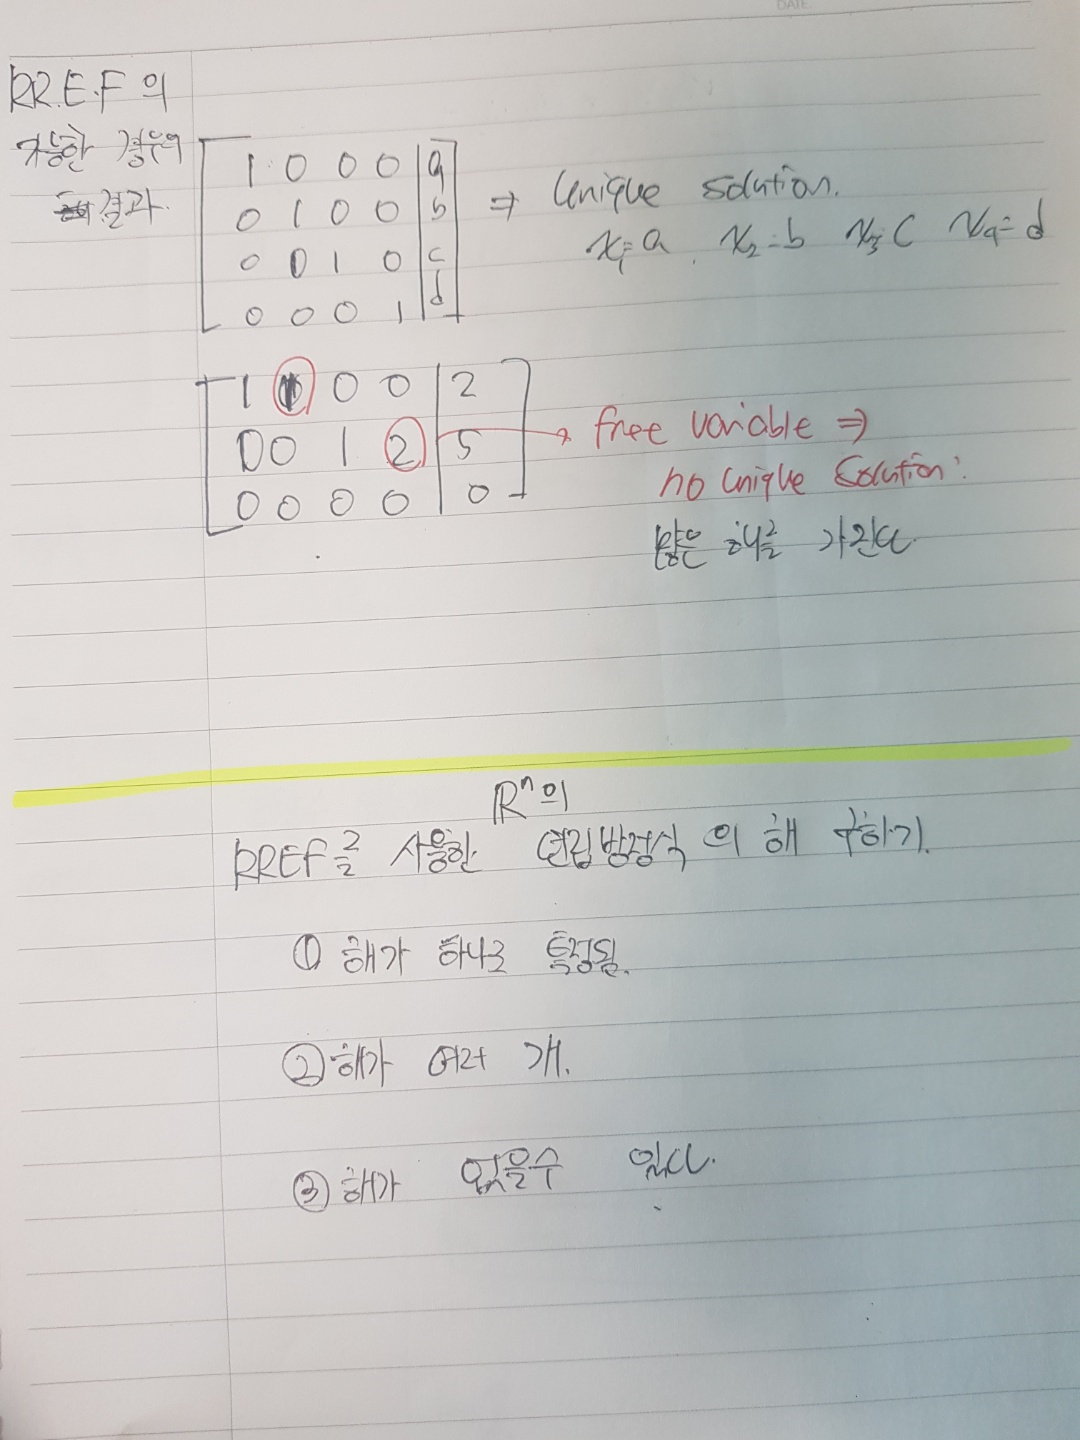 DATE.
R.R.E.F 의
가능한 경우의
결과.
1 0 0 0 | a
0 1 0 0 | b
0 0 1 0 | c
0 0 0 1 | d
⇒ Unique solution.
x₁=a, x₂=b x₃=c x₄=d
1 0 0 | 2
0 0 1 2 | 5
0 0 0 0 | 0
→ free variable ⇒
no unique solution:
많은 해를 가진다.
Rⁿ의
RREF를 사용한 연립방정식의 해 구하기.
① 해가 하나로 특정됨.
② 해가 여러 개.
③ 해가 없을수 있다.